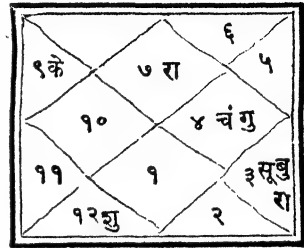 ६
९के ७ रा ५
१० ४ चंगु
११ १ ३ सूबु
रा
१२शु २